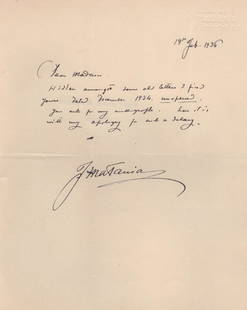 19th Feb. 1936
Dear Madam,
Hidden amongst some old letters I find
yours dated December 1934, unopened.
You ask for my autograph. Here it is
with my apology for such a delay.
F Matania